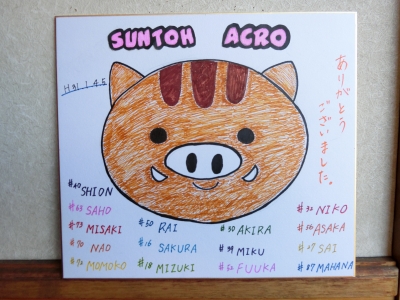 SUNTOH ACRO
H31.1.4.5
ありがとう
ございました。
#40 SHION
SAHO
#73 MISAKI
#70 NAO
MOMOKO
#50 RAI
#16 SAKURA
#18 MIZUKI
#30 AKIRA
MIKU
FUUKA
NIKO
ASAKA
SAI
#87 MAHANA